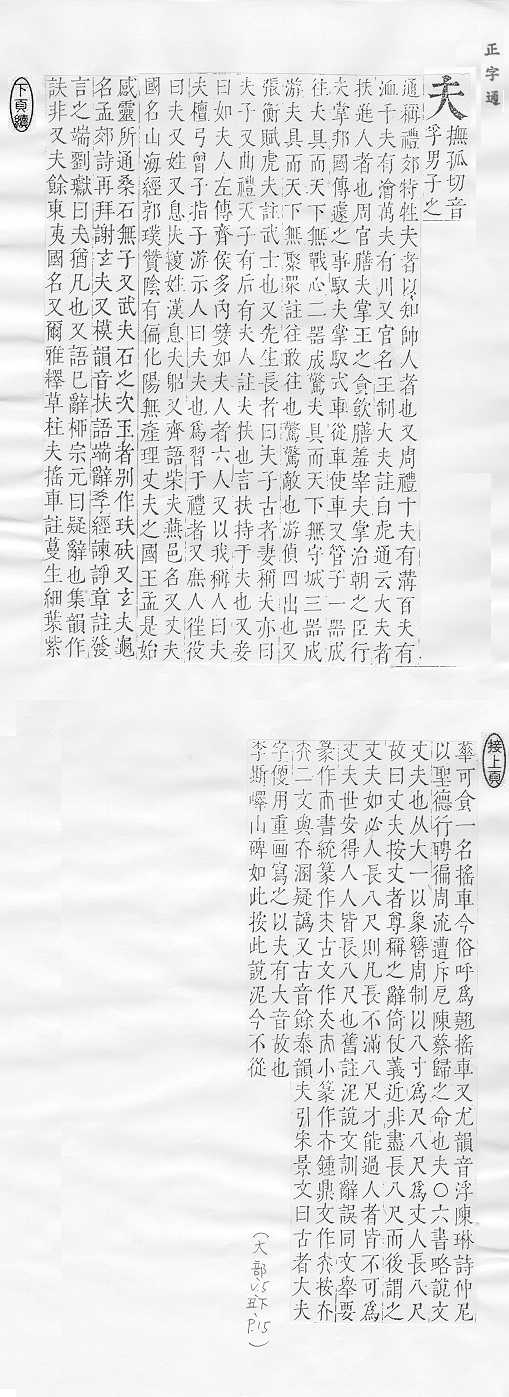 正字通
夫
撫孤切音
孚男子之
通稱禮郊特牲夫者以知帥人者也又周禮十夫有溝百夫有
洫千夫有澮萬夫有川又官名王制大夫註白虎通云大夫者
扶進人者也周官膳夫掌王之食飲膳羞宰夫掌治朝之臣行
夫掌邦國傳遽之事馭夫掌馭式車從車使車又管子一器成
往夫具而天下無戰心二器成驚夫具而天下無守城三器成
游夫具而天下無聚眾註往敢往也驚驚敵也游偵回出也又
張衡賦虎夫註武士也又先生長者曰夫子古者妻稱夫亦曰
夫子又曲禮天子有后有夫人註夫扶也言扶持于夫也又妾
曰如夫人左傳齊侯多內嬖如夫人者六人又以我稱人曰夫
夫檀弓曾子指子游示人曰夫夫也爲習于禮者又庶人徭役
曰夫又姓又息夫複姓漢息夫躬又齊語柴夫燕邑名又丈夫
國名山海經郭璞贊陰有偏化陽無產理丈夫之國王孟是始
感靈所通桑石無子又武夫石之次玉者别作玞砆又玄夫龜
名孟郊詩再拜謝玄夫又模韻音扶語端辭孝經諫諍章註發
言之端劉瓛曰夫猶凡也又語巳辭柳宗元曰疑辭也集韻作
訣非又夫餘東夷國名又爾雅釋草柱夫搖車註蔓生細葉紫
下頁續
接上頁
華可食一名搖車今俗呼爲翹搖車又尤韻音浮陳琳詩仲尼
以聖德行聘徧周流遭斥戹陳蔡歸之命也夫○六書略說文
丈夫也从大一以象簪周制以八寸爲尺八尺爲丈人長八尺
故曰丈夫按丈者尊稱之辭倚仗義近非盡長八尺而後謂之
丈夫如必人長八尺則凡長不滿八尺才能過人者皆不可爲
丈夫世安得人人皆長八尺也舊註泥說文訓辭誤同文舉要
篆作而書統篆作夫古文作夾小篆作夰鍾鼎文作按夰
二文與夰溷疑譌又古音餘泰韻夫引宋景文曰古者大夫
字㑮用重畫寫之以夫有大音故也
李斯嶧山碑如此按此說泥今不從
(大部
v.5
丑下
P.15)